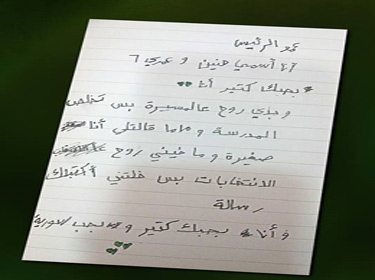 عمو الرئيس
أنا أسمي حنين و عمري ٦
بحبك كتير أنا
وبدي روح عالمسيرة بس تخلص
المدرسة و ماما قالتلي أنا
صغيرة و ما فيني روح
الانتخابات بس خلتني أكتبلك
رسالة
و أنا بحبك كتير و بحب سورية